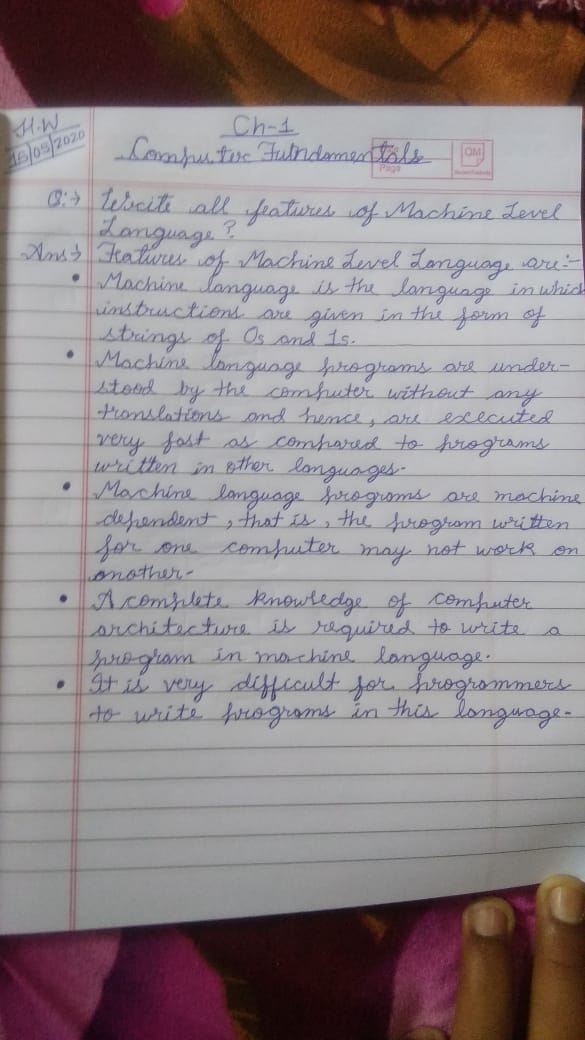 H.W
15/05/2020
Ch-1
Computer Fundamentals
Page
OM
Q:→ Write all features of Machine Level
Language?
Ans→ Features of Machine Level Language are:-
• Machine language is the language in which
instructions are given in the form of
strings of 0s and 1s.
• Machine language programs are under-
stood by the computer without any
translations and hence, are executed
very fast as compared to programs
written in other languages.
• Machine language programs are machine
dependent, that is, the program written
for one computer may not work on
another.
• A complete knowledge of computer
architecture is required to write a
program in machine language.
• It is very difficult for programmers
to write programs in this language.